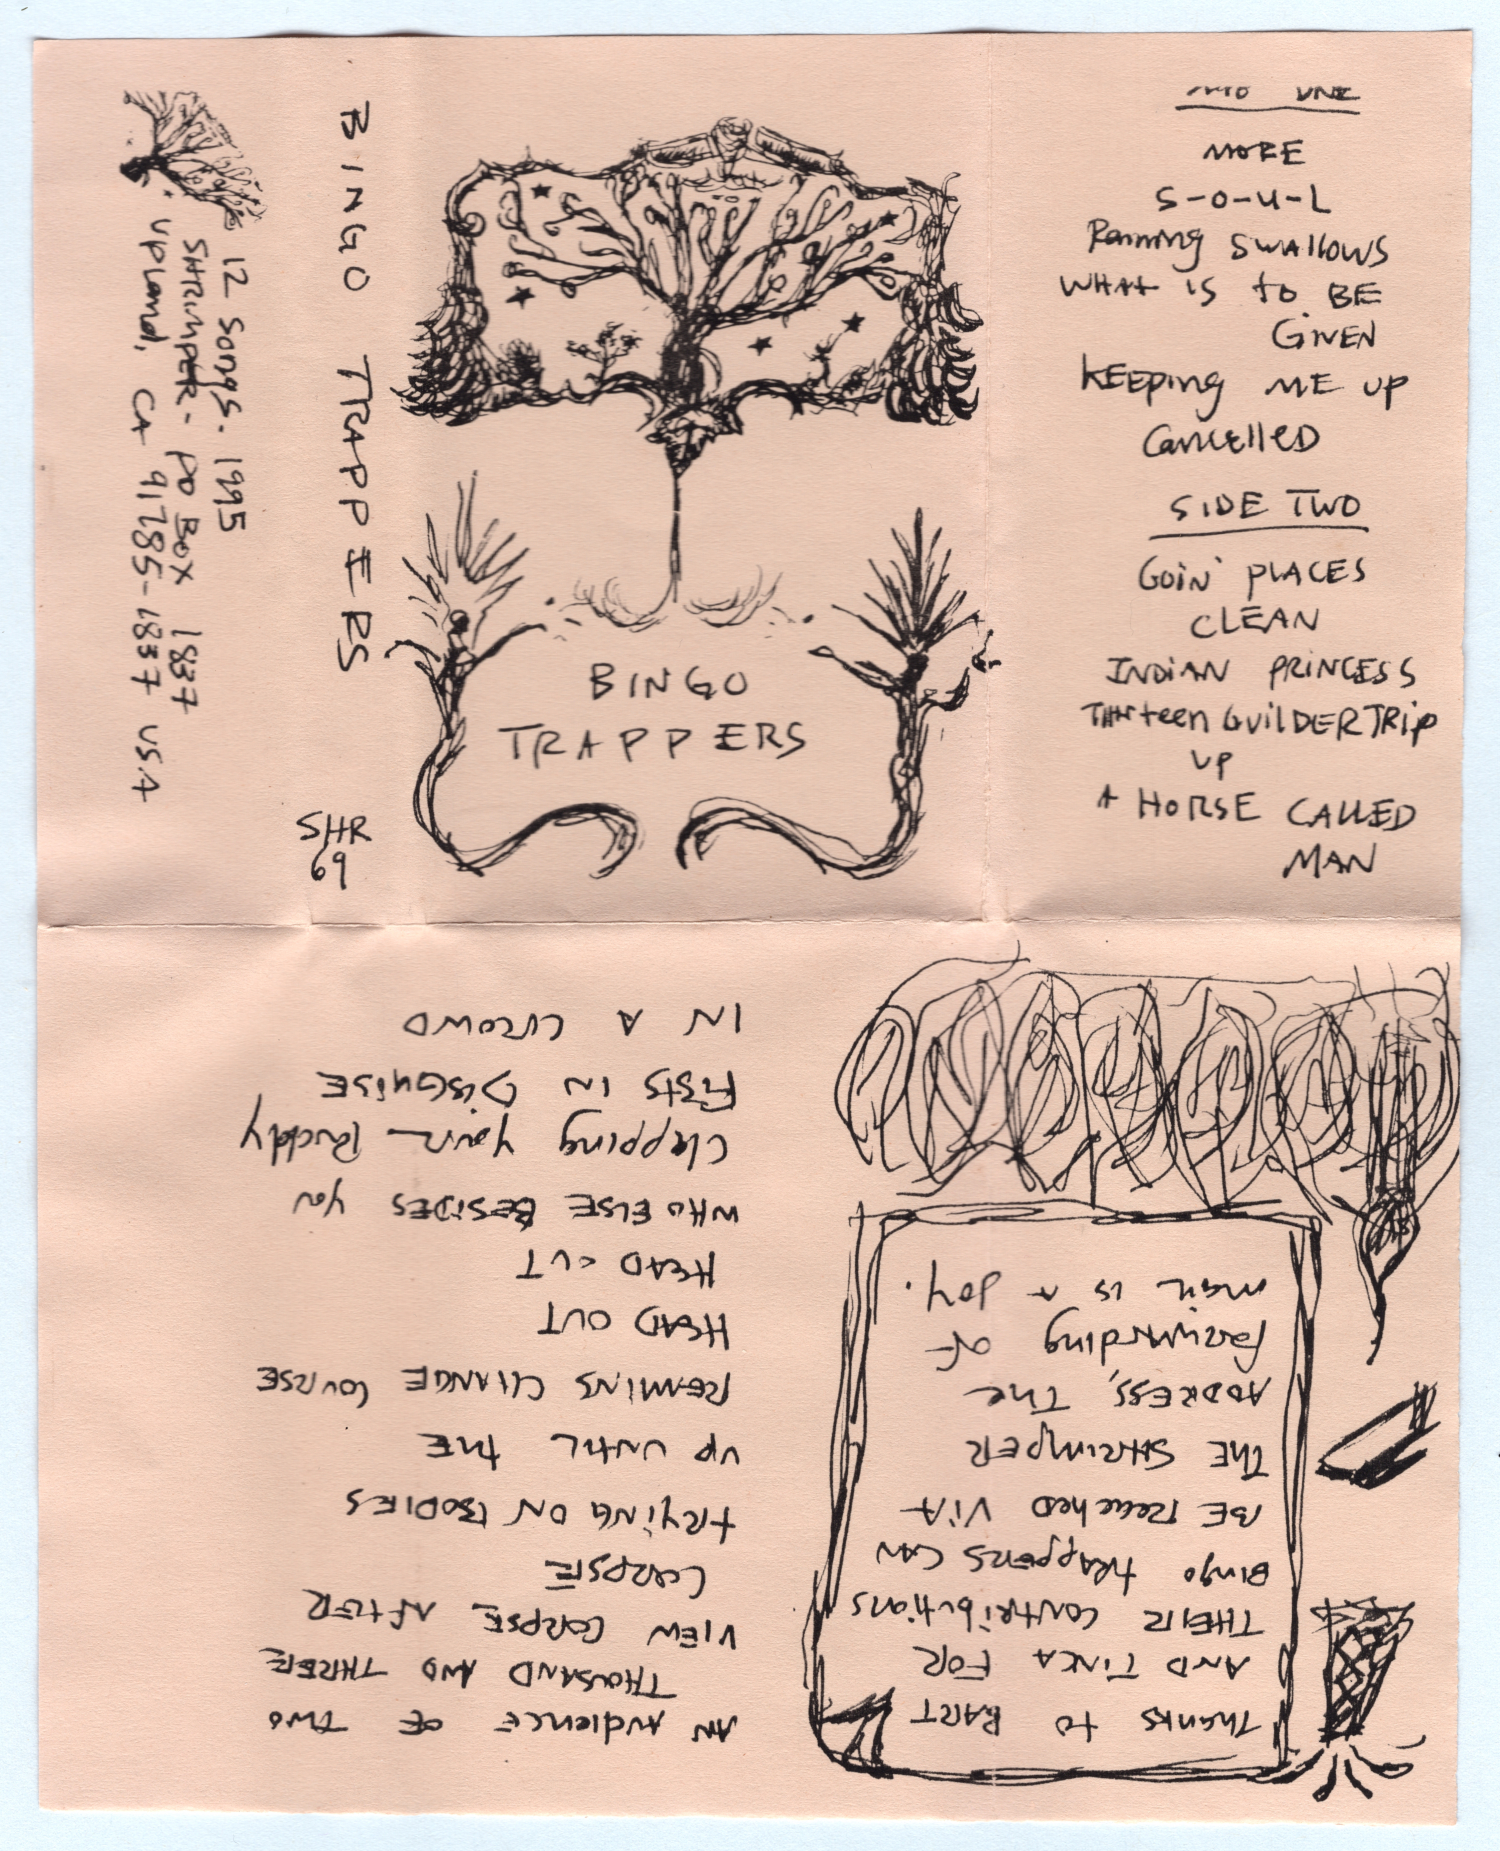 12 Songs. 1995
SHRIMPER - PO BOX 1837
Upland, CA 91785-1837 USA
BINGO TRAPPERS
SHR
69
BINGO
TRAPPERS
ONE
MORE
S-O-U-L
Raining SWALLOWS
WHAT IS to BE
GIVEN
KEEPING ME UP
CancellED
SIDE TWO
GOIN' PLACES
CLEAN
INDIAN PRINCESS
THirteen GUILDER TRIP
UP
A HORSE CALLED
MAN
AN AUDIENCE OF TWO
THOUSAND AND THREE
VIEW CORPSE AFTER
CORPSE
tRying ON BODIES
UP UNTIL THE
REMAINS CHANGE COURSE
HEAD OUT
HEAD OUT
WHO ELSE BESIDES you
Clapping your Buddy
FISTS IN DISGUISE
IN A CROWD
THANKS tO BART
AND TINEA FOR
THEIR CONTRIBUTIONS
BINGO TRAPPERS CAN
BE REACHED VIA
THE SHRIMPER
ADDRESS, THE
forwarding of
mail is A Joy.